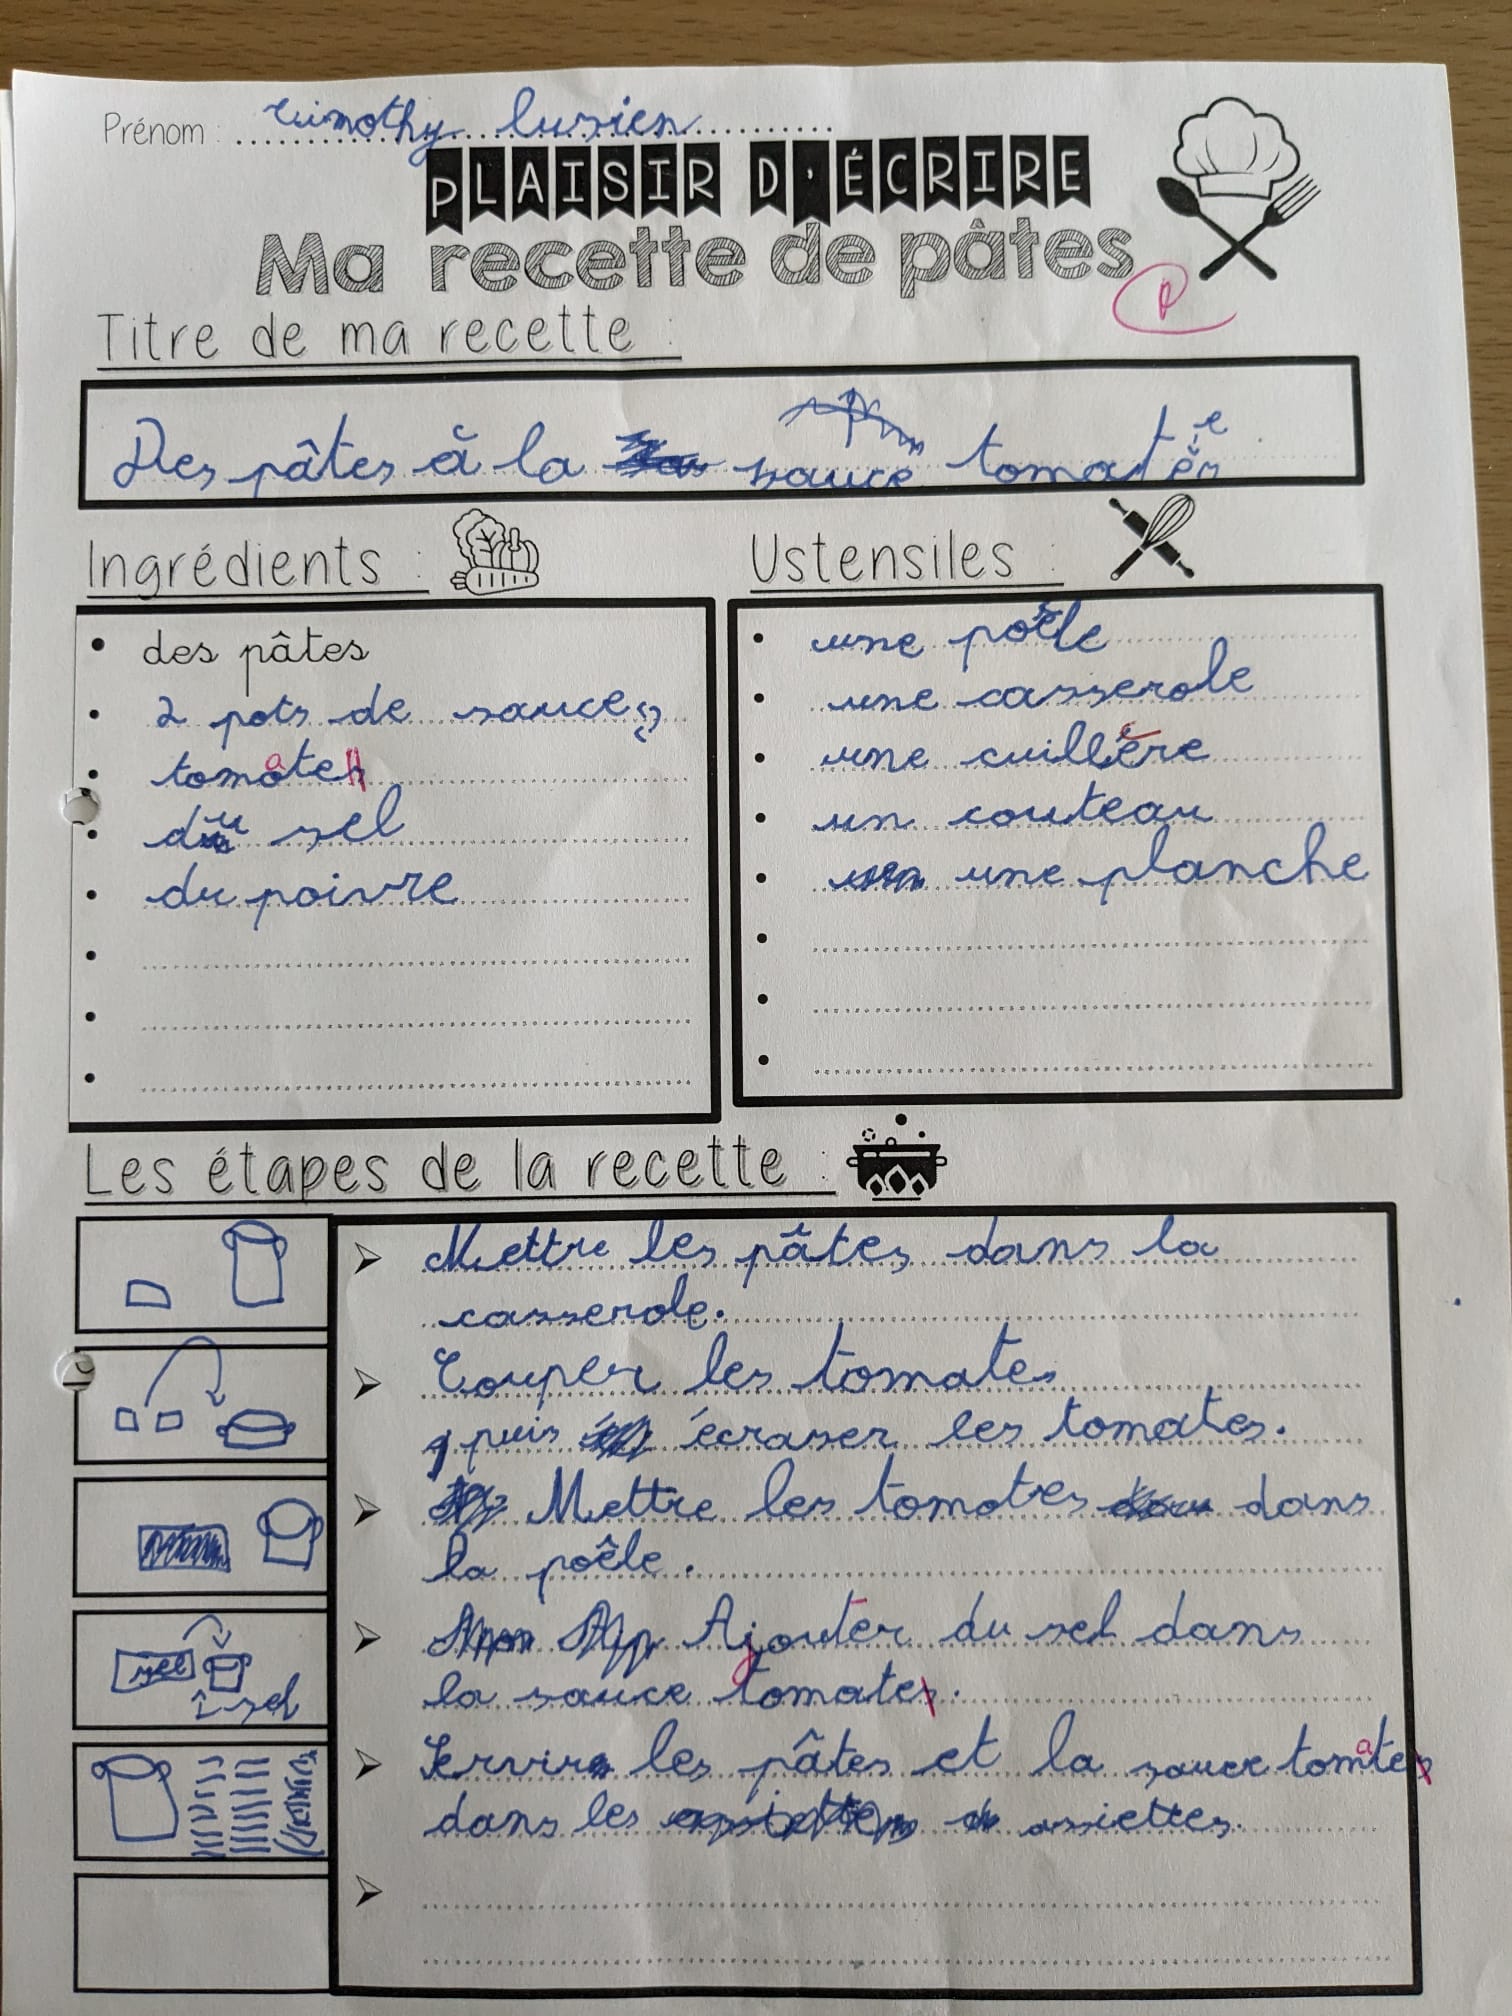 Prénom : Timothy Lucien
PLAISIR D'ÉCRIRE
Ma recette de pâtes
Titre de ma recette :
Des pâtes à la sauce tomate
Ingrédients :
• des pâtes
• 2 pots de sauce
• tomate
• du sel
• du poivre
Ustensiles :
• une poêle
• une casserole
• une cuillère
• un couteau
• une planche
Les étapes de la recette :
➢ Mettre les pâtes dans la
casserole.
➢ Couper les tomates
puis écraser les tomates.
➢ Mettre les tomates dans
la poêle.
➢ Ajouter du sel dans
la sauce tomate.
sel
sel
➢ Servir les pâtes et la sauce tomate
dans les assiettes.